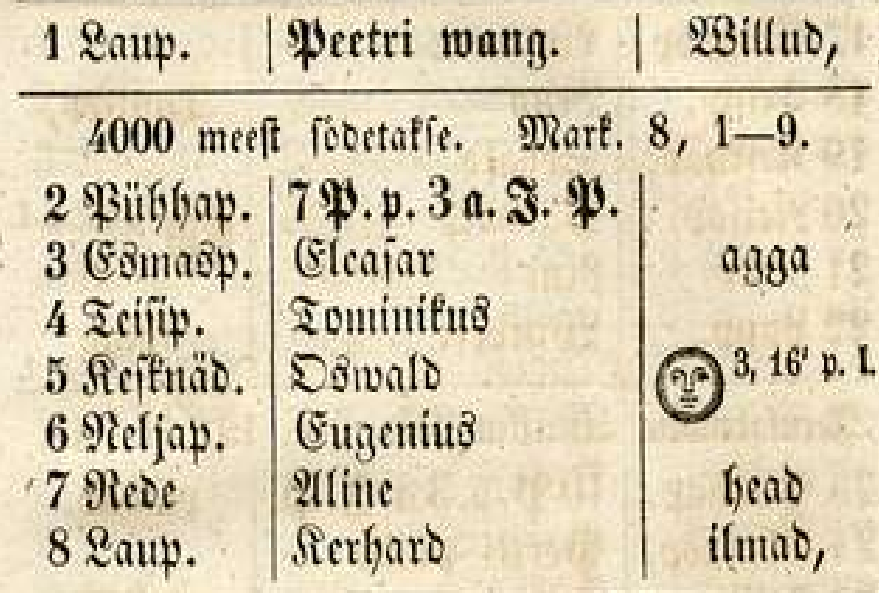 1 Laup. Peetri wang. Willud,
4000 meest södetakse. Mark. 8, 1—9.
2 Pühhap. 7 P. p. 3 a. J. P.
3 Esmasp. Eleasar agga
4 Teisip. Tominikus
5 Kesknäd. Oswald 3, 16' p. l.
6 Neljap. Eugenius
7 Rede Aline head
8 Laup. Kerhard ilmad,